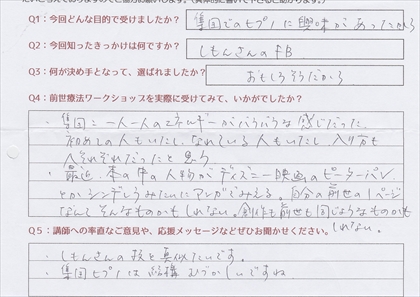 Q1：今回どんな目的で受けましたか？ 集団でのヒプノに興味があったから
Q2：今回知ったきっかけは何ですか？ しもんさんのFB
Q3：何が決め手となって、選ばれましたか？ おもしろそうだから
Q4：前世療法ワークショップを実際に受けてみて、いかがでしたか？
・集団＝一人一人のエネルギーがバラバラな感じだった。
初めての人もいたし、なれている人もいたし、入り方も
人それぞれだったと思う
・最近、本の中の人物がディズニー映画のピーターパン
とかシンデレラみたいにアンガでみえる。自分の前世の1ページ
なんてそんなものかもしれない。創作も前世も同じようなものかも
しれない。
Q5：講師への率直なご意見や、応援メッセージなどぜひお聞かせください。
・しもんさんの技を真似たいです。
・集団ヒプノは結構むづかしいですね